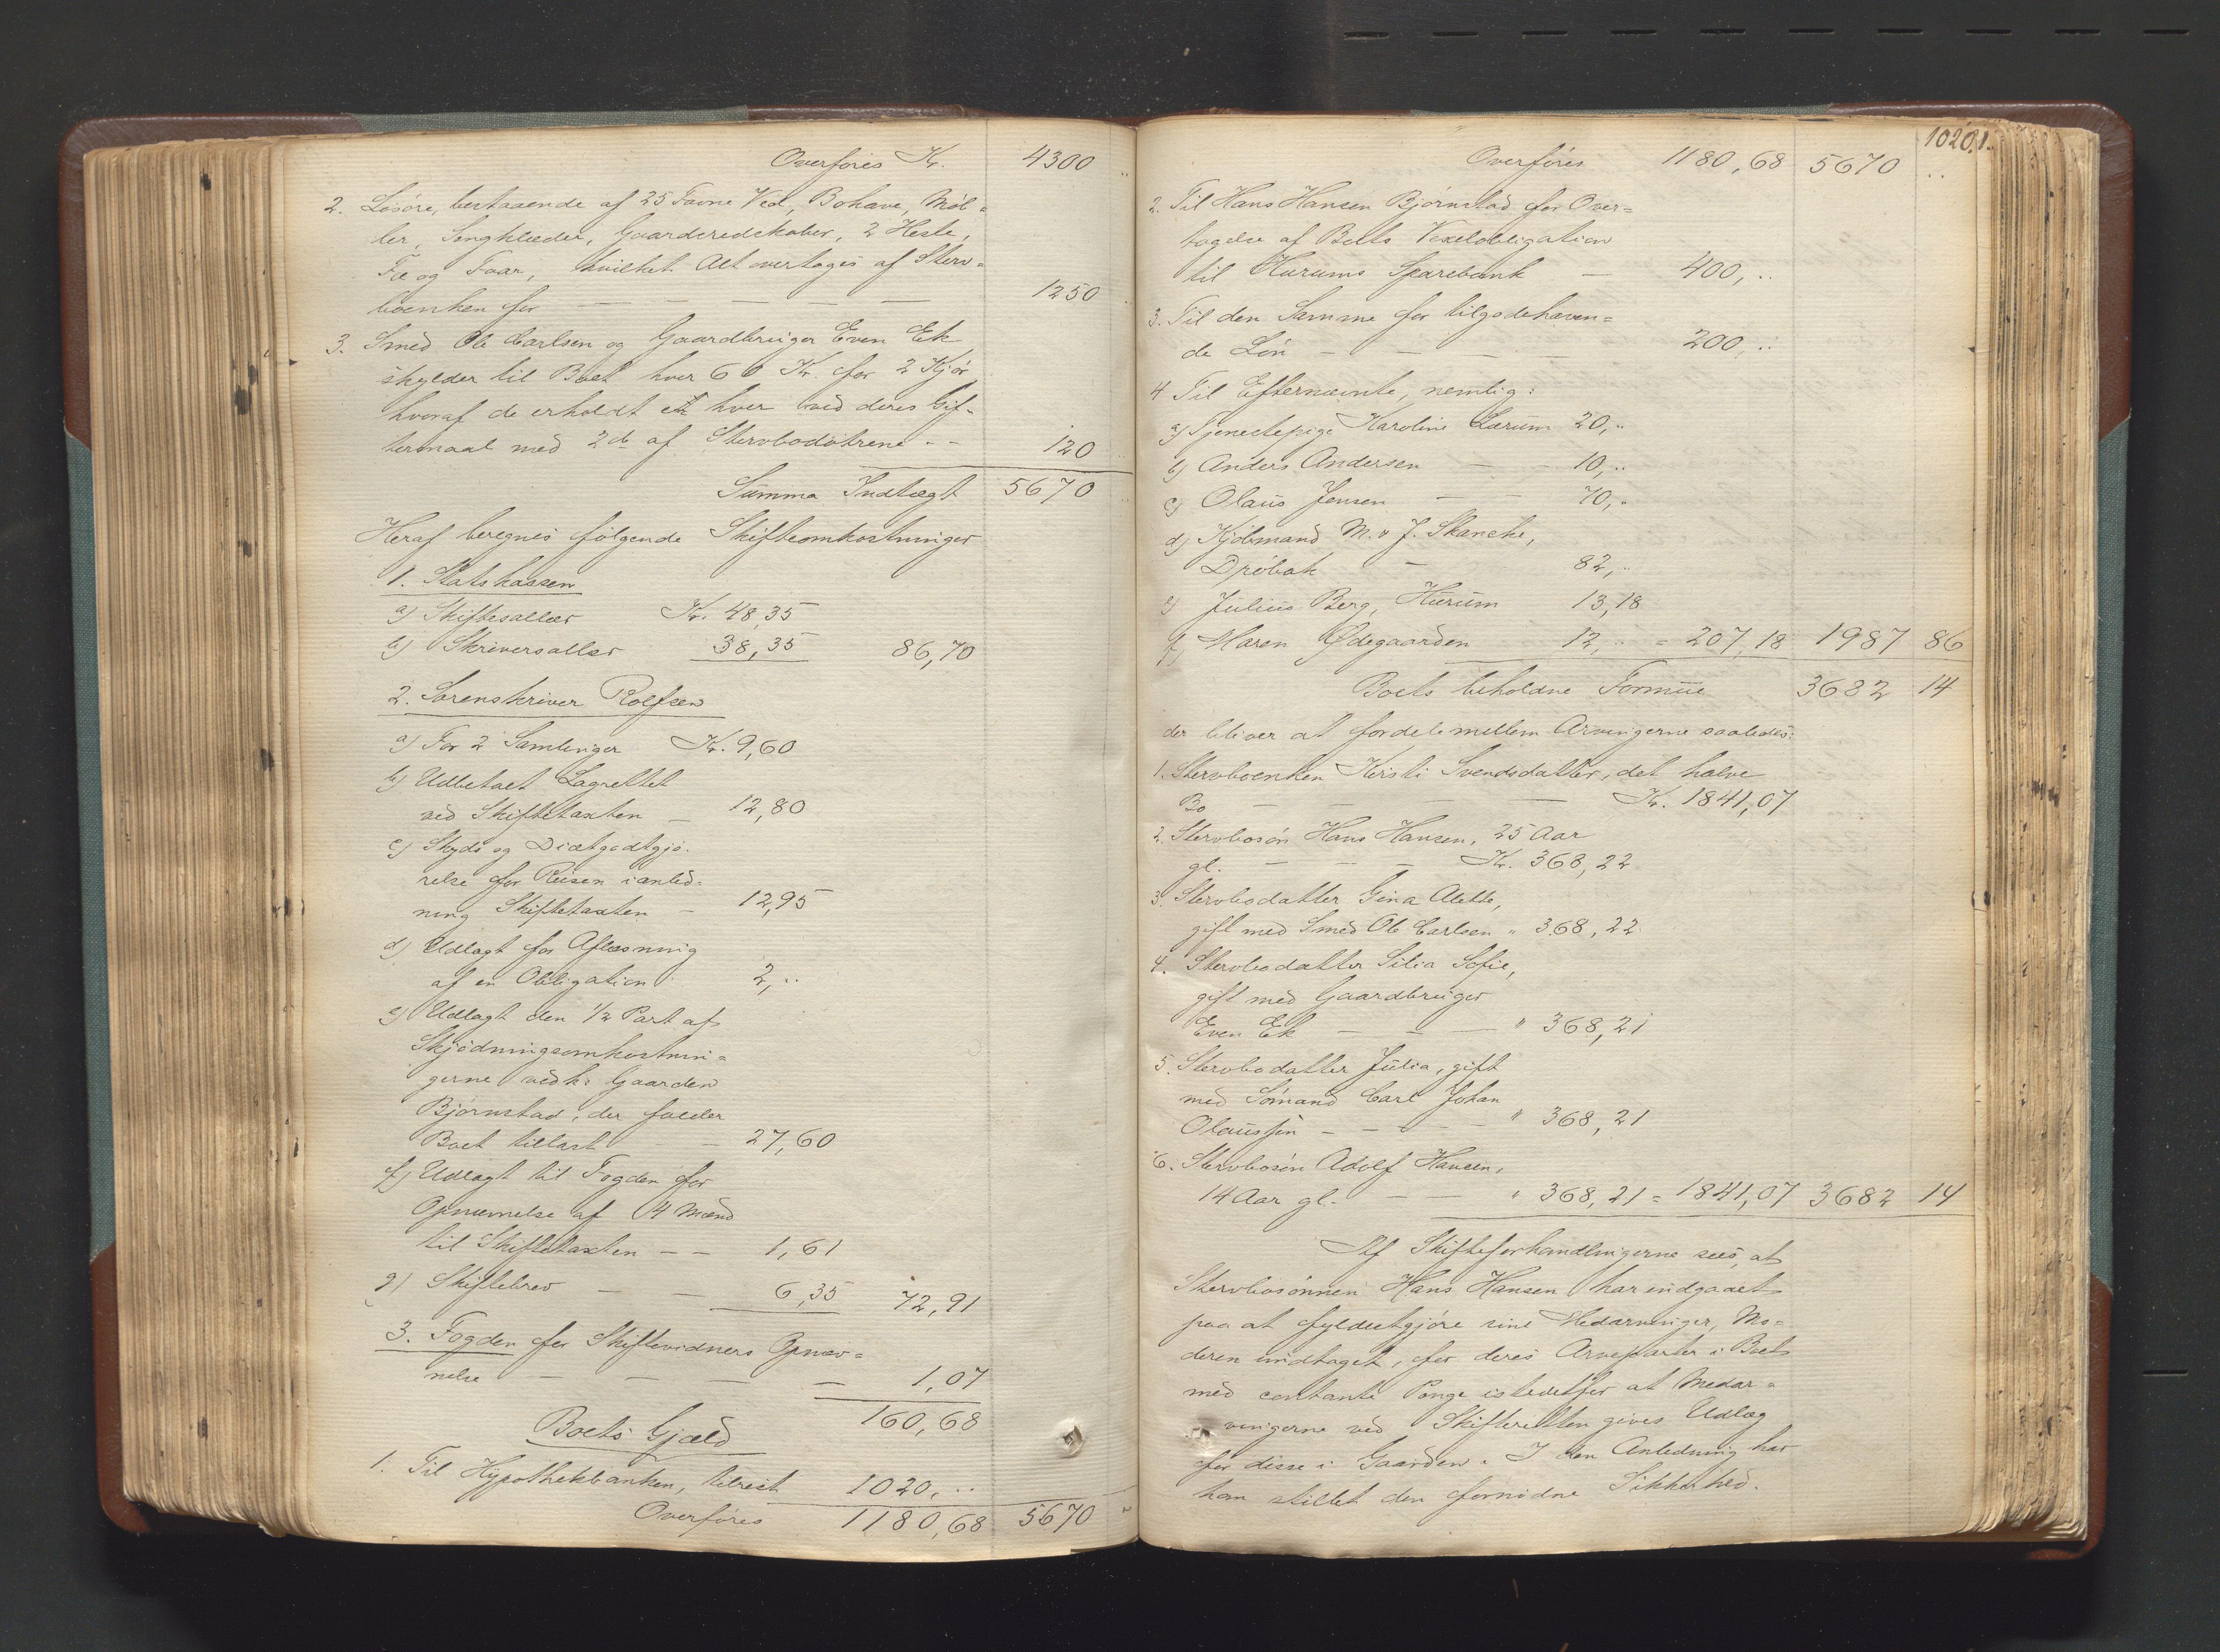 Overføres Kr. 4300 ..
2. Løsøre, bestaaende af 25 Favne Ved, Bohave, Møb=
ler, Sengklæder, Gaardsredskaber, 2 Heste,
Fæ og Faar, hvilket Alt overtages af Sterv=
boenken for — — — — — 1250 ..
3. Smed Ole Carlsen og Gaardbruger Even Ek
skylder til Boet hver 60 Kr. for 2 Kjør,
hvoraf de erholdt en hver ved deres Gif=
termaal med 2de af Stervbodøtrene - - 120 ..
Summa Indtægt 5670 ..
Heraf beregnes følgende Skifteomkostninger
1. Statskassen
a) Skiftesallær Kr. 48,35
b) Skriversallær 38,35 86,70
2. Sorenskriver Rolfsen
a) For 2 Samlinger Kr. 9,60
b) Udbetalt Lagrettet
ved Skiftetaxten — 12,80
c) Skyds og Diætgodtgjø=
relse for Reisen i anled=
ning Skiftetaxten — 12,95
d) Udlagt for Aflæsning
af en Obligation 2,..
e) Udlagt den 1/2 Part af
Skjødningsomkostnin=
gerne vedk: Gaarden
Bjørnstad, der falder
Boet tillast — — 27,60
f) Udlagt til Fogden for
Opnævnelse af 4 Mænd
til Skiftetaxten — — 1,61
g) Skiftebrev — — 6,35 72,91
3. Fogden for Skiftevidners Opnæv=
nelse — — — — 1,07
160,68
Boets Gjæld
1. Til Hypothekbanken, tilrest 1020,..
Overføres 1180,68 5670
1020.1.
Overføres 1180,68 5670 ..
2. Til Hans Hansen Bjørnstad for Over=
tagelse af Boets Vexelobligation
til Hurums Sparebank — 400,..
3. Til den Samme for tilgodehaven=
de Løn — — — — 200,..
4 Til Efternævnte, nemlig:
a) Tjenestepige Karoline Lærum 20,..
b) Anders Andersen — — 10,..
c) Olaus Jensen — — 70,..
d) Kjøbmand M. & J. Skancke,
Drøbak — 82,..
e) Julius Berg, Hurum 13,18
f) Maren Ødegaarden 12,.. = 207,18 1987 86
Boets beholdne Formue 3682 14
der bliver at fordele mellem Arvingerne saaledes:
1. Stervboenken Kirsti Svendsdatter, det halve
Bo — — — — Kr. 1841,07
2. Stervbosøn Hans Hansen, 25 Aar
gl. — — — Kr. 368,22
3. Stervbodatter Gina Alette,
gift med Smed Ole Carlsen " 368,22
4. Stervbodatter Silia Sofie,
gift med Gaardbruger
Even Ek — — — " 368,21
5. Stervbodatter Julia, gift
med Sømand Carl Johan
Olaussen — — — — " 368,21
6. Stervbosøn Adolf Hansen,
14 Aar gl. — — " 368,21 = 1841,07 3682 14
Af Skifteforhandlingerne sees, at
Stervbosønnen Hans Hansen har indgaaet
paa at fyldestgjøre sine Medarvinger, Mo=
deren undtaget, for deres Arveparter i Boet
med contante Penge istedetfor at Medar=
vingerne ved Skifteretten gives Udlæg
for disse i Gaarden. I den Anledning har
han stillet den fornødne Sikkerhed.